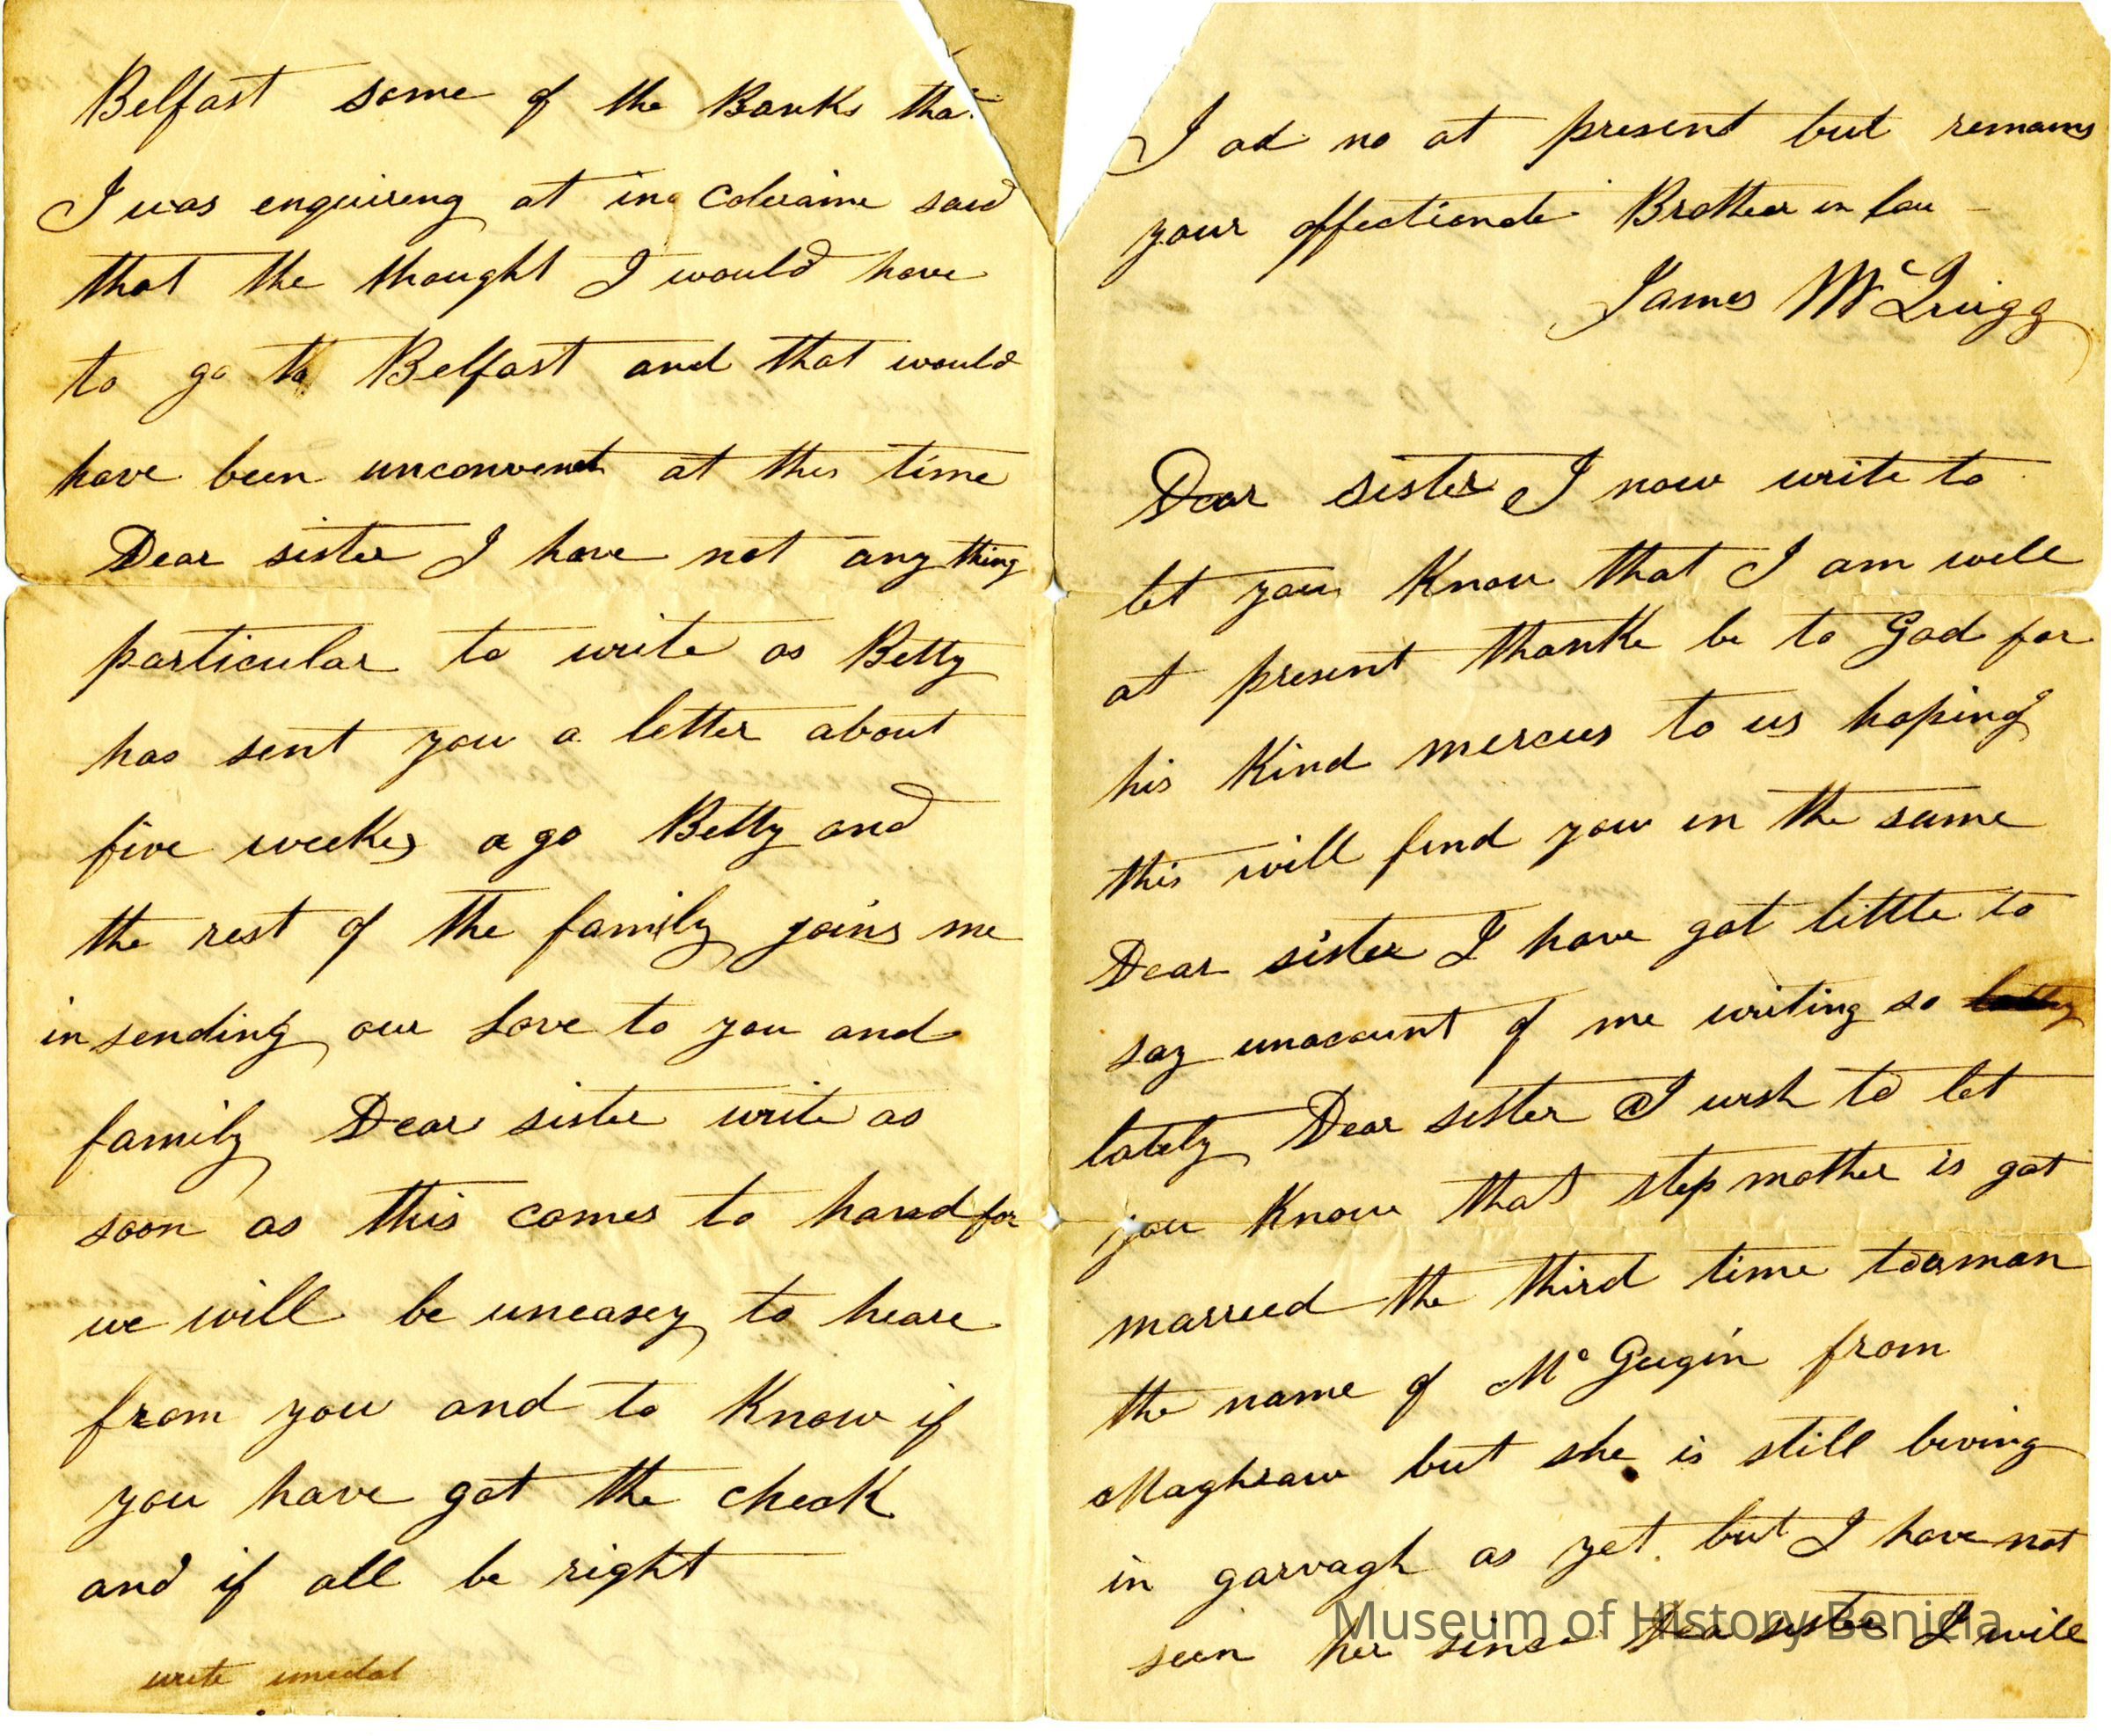 Belfast some of the Banks that
I was enquireng at in Coleraine said
that the thought I would have
to go to Belfast and that would
have been unconvenet at this time
Dear sister I have not any thing
particular to write as Betty
has sent you a letter about
five weekes ago Betty and
the rest of the family joins me
in sending our Love to you and
family Dear sister write as
soon as this comes to hand for
we will be uneasey to heare
from you and to Know if
you have got the cheak
and if all be right
write
I ad no at present but remains
your affectionate Brother in law
James McQuigg
Dear sister I now write to
let you Know that I am well
at present thanke be to God for
his Kind mercies to us hoping
this will find you in the same
Dear sister I have got little to
say unacount of me writing so
lately Dear sister I wish to let
you Know that step mother is got
married the third time to a man
the name of McGugin from
Maghraw but she is still living
in garvagh as yet but I have not
seen her since Dear sister I will
Museum of History Benicia